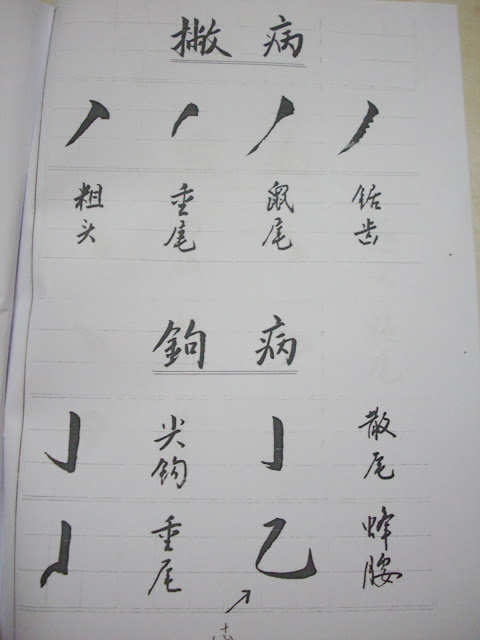 撇病
粗头 垂尾 鼠尾 锯齿
鉤病
尖钩 散尾
垂尾 蜂腰